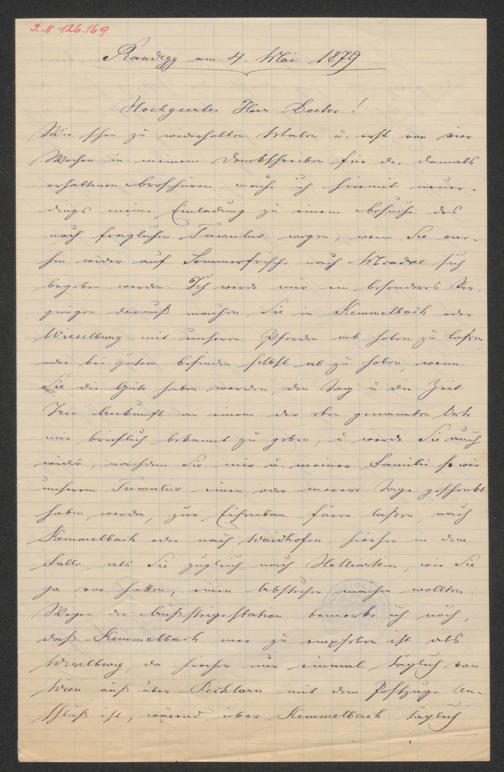 J. N 126.169
Randegg am 4. Mai 1879
Hochgeerter Herr Doctor!
Wie schon zu wiederholten Malen u. erst vor vier
Wochen in meinem Dankschreiben für die damals
erhaltenen Broschüren, mache ich hiermit neuer-
dings meine Einladung zu einem Besuche des
noch fraglichen Tumulus wegen, wenn Sie
wieder auf Sommerfrische nach sich
begeben werden. Ich werde mir ein besonderes Ver-
gnügen daraus machen Sie in Kemmelbach oder
Wieselburg mit unseren Pferden ab holen zu lassen
oder bei gutem befinden selbst ab zu holen, wenn
Sie die Güte haben werden, den Tag u. die Zeit
Irer Ankunft an einem der oben genannten Orte
mir brieflich bekannt zu geben, u. werde Sie auch
wieder, nachdem Sie mir u. meiner Familie so wie
unserem Tumulus einen oder merere Tage geschenkt
haben werden, zur Eisenban füren lassen nach
Kemmelbach oder nach Waidhofen hierher in dem
Falle als Sie zugleich nach Hollenstein, wie Sie
ja vor hatten, einen Abstecher machen wollten.
Wegen der Aussteigestation bemerke ich noch,
daß Kemmelbach mer zu empfehlen ist als
Wieselburg, da hierher nur einmal täglich von
Wien aus über Pöchlarn mit dem Postzuge An-
schluß ist, wärend über Kemmelbach täglich